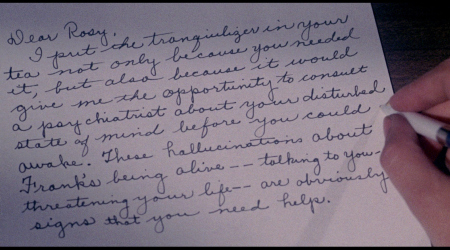 Dear Rosy,
I put the tranquilizer in your
tea not only because you needed
it, but also because it would
give me the opportunity to consult
a psychiatrist about your disturbed
state of mind before you could
awake. These hallucinations about
Frank's being alive -- talking to you--
threatening your life-- are obviously
signs that you need help.